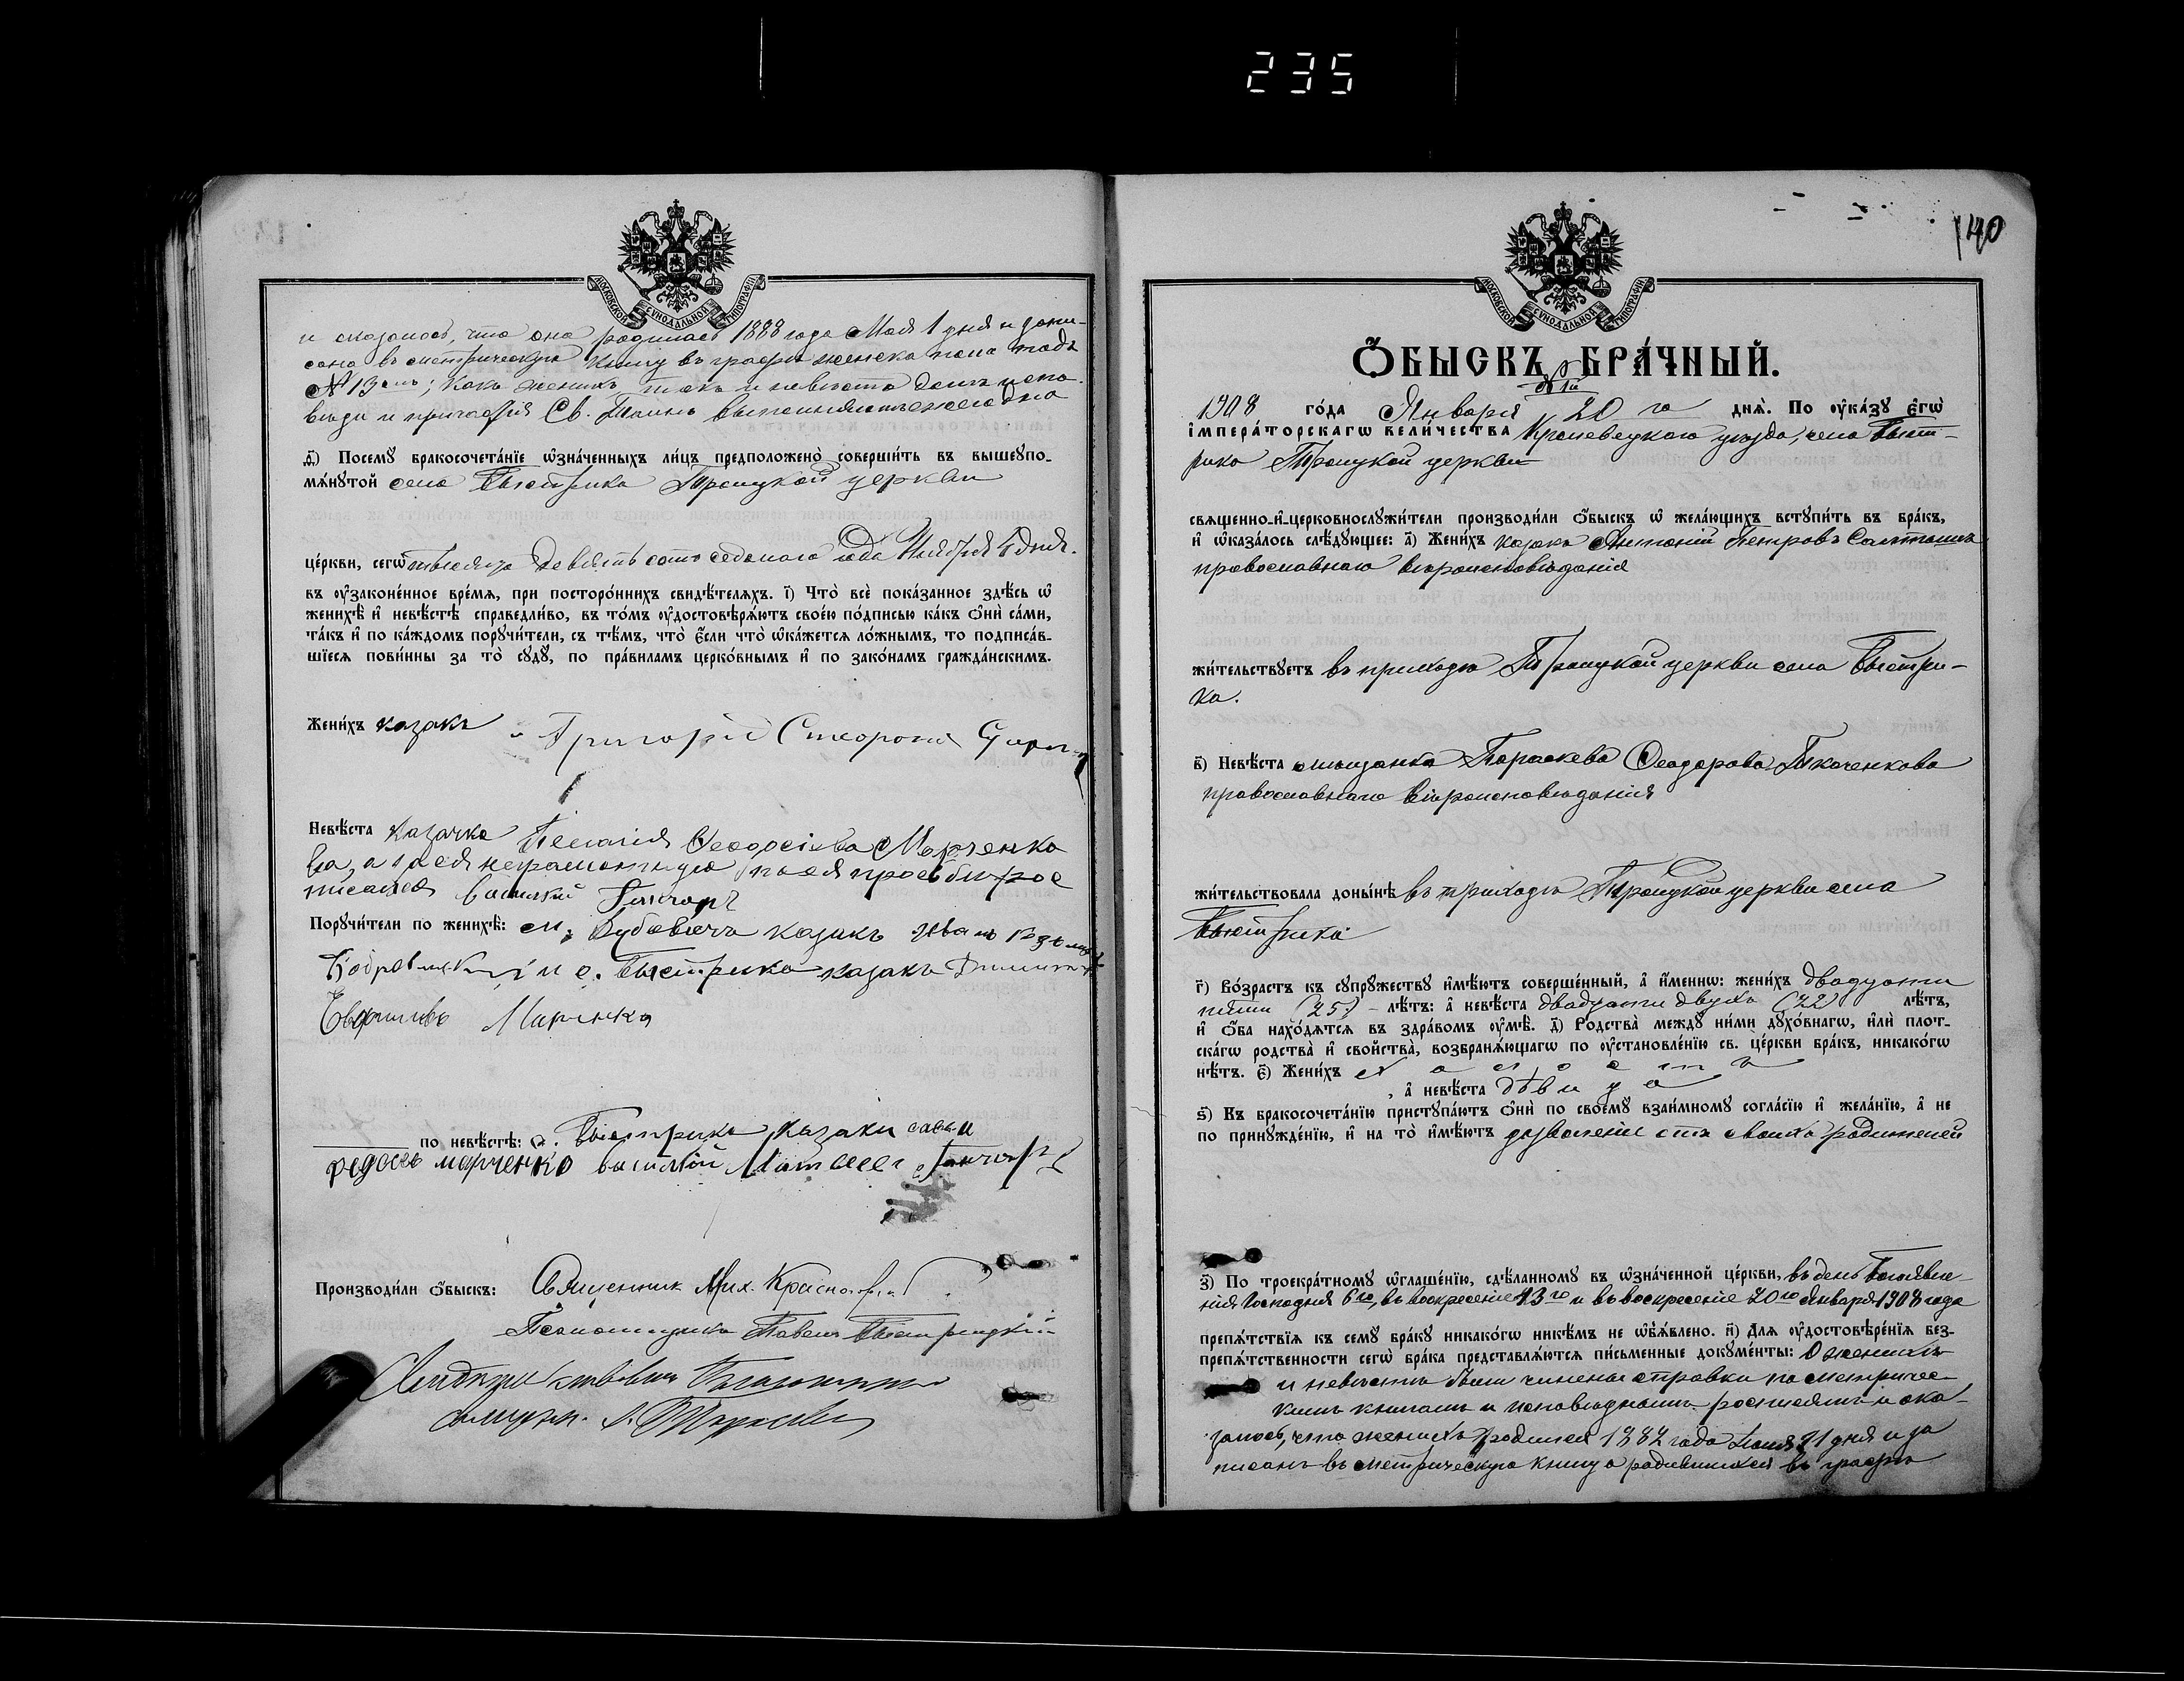 235
МОСКОВСКОЙ СѴНОДАЛЬНОЙ ТИПОГРАФІИ
и оказалось, что она родилась 1888 года Мая 1 дня и запи-
сана въ метрическую книгу въ графѣ женска пола подъ
№ 13 емъ; какъ женихъ, такъ и невѣста долгъ испо-
вѣди и причастія Св. Таинъ выполняютъ ежегодно
д҃) Посемꙋ бракосочета́нїе ѡ҆зна́ченныхъ ли́цъ предположено̀ соверши́ть въ вышеꙋпо-
мѧ́нꙋтой села Быстрика Троицкой церкви
це́ркви, сегѡ̀ тысяча девятьсотъ седьмого года Ноября 4 дня.
въ ᲂу҆зако́ненное вре́мѧ, при посторо́ннихъ свидѣ́телѧхъ. і҃) Что̀ всѐ пока́занное здѣ́сь ѡ҆
женихѣ̀ и҆ невѣ́стѣ справедли́во, въ то́мъ ᲂу҆достовѣрѧ́ютъ свое́ю по́дписью ка́къ ѻ҆нѝ са́ми,
та́къ и҆ по ка́ждомъ порꙋчи́тели, съ тѣ́мъ, что̀ є҆́сли что̀ ѡ҆ка́жется ло́жнымъ, то подписа́в-
шїесѧ пови́нны за то̀ сꙋдꙋ̀, по пра́вилимъ церко́внымъ и҆ по зако́намъ гражда́нскимъ.
Жени́хъ казакъ Григорій
Невѣ́ста казачка Пелагія Ѳеодосіева Марченко
ва, а за ея неграмотную по ея просьбѣ рос
писался Василий Гончаръ
Порꙋчи́тели по женихѣ̀: казакъ Иванъ
и с. Быстрика казакъ
Марченко
по невѣ́стѣ: с. Быстрика казаки
федось марченко василій Гончаръ
Производи́ли ѻ҆́быскъ: Священник Мих.
Псаломщикъ Павелъ Быстрицкій
140
МОСКОВСКОЙ СѴНОДАЛЬНОЙ ТИПОГРАФІИ
Ѻ҆́БЫСКЪ БРА́ЧНЫЙ.
1908 го́да Января 20 го днѧ̀. По ᲂу҆ка́зꙋ є҆гѡ̀
і҆мпера́торскагѡ вели́чества Кролевецкаго уѣзда, села Быст-
рика Троицкой церкви
свѧщенно-и҆-церковнослꙋжи́тели производи́ли ѻ҆́быскъ ѡ҆ жела́ющихъ встꙋпи́ть въ бра́къ,
и҆ ѡ҆каза́лось слѣ́дꙋющее: а҃) Жени́хъ казакъ Антоній Петровъ Салтанъ
православнаго вѣроисповѣданія
жи́тельствꙋетъ въ приходѣ Троицкой церкви села Быстри-
ка.
в҃) Невѣ́ста мѣщанка Параскева Ѳеодорова Ткаченкова
православнаго вѣроисповѣданія
жи́тельствовала доны́нѣ въ приходѣ Троицкой церкви села
Быстрика
г҃) Во́зрастъ къ сꙋпрꙋ́жествꙋ и҆мѣ́ютъ соверше́нный, а҆ и҆́менно: жени́хъ двадцати
пяти (25) лѣ́тъ: а҆ невѣ́ста двадцати двухъ (22) лѣ́тъ,
и҆ ѻ҆́ба нахо́дѧтсѧ въ здра́вомъ ᲂу҆мѣ̀. д҃) Родства̀ междꙋ ни́ми дꙋхо́внагѡ, и҆лѝ плот-
ска́гѡ родства̀ и҆ свойства̀, возбранѧ́ющагѡ по ᲂу҆становле́нїю св. це́ркви бра́къ, никако́гѡ
нѣ́тъ. є҃) Жени́хъ холостъ
, а҆ невѣ́ста дѣвица
ѕ҃) Къ бракосочета́нїю пристꙋпа́ютъ ѻ҆нѝ по своемꙋ̀ взаи́мномꙋ согла́сїю и҆ жела́нїю, а҆ не
по принꙋжде́нїю, и҆ на то̀ и҆мѣ́ютъ дозволеніе отъ своихъ родителей
з҃) По троекра́тномꙋ ѡ҆глаше́нїю, сдѣ́ланномꙋ въ ѡ҆зна́ченной це́ркви, въ день Богоявле-
нія Господня 6 го, въ воскресеніе 13 го и въ воскресеніе 20 го Января 1908 года
препѧ́тствїѧ къ семꙋ̀ бра́кꙋ никако́гѡ никѣ́мъ не ѡ҆б̾ѧ́влено. и҃) Длѧ ᲂу҆достовѣре́нїѧ без-
препѧ́тственности сегѡ̀ бра́ка представлѧ́ютсѧ пи́сьменные докꙋме́нты: О женихѣ
и невѣстѣ были чинены справки по метричес-
кимъ книгамъ и исповѣднымъ росписямъ и ока-
залось, что женихъ родился 1882 года 21 дня и за
писанъ въ метрическую книгу о родившихся въ графѣ